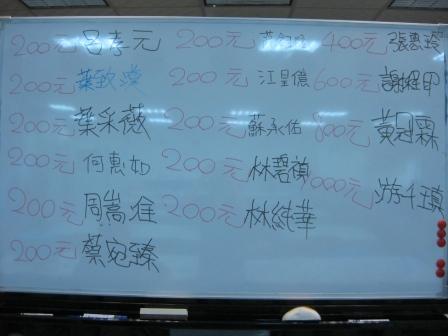 200元 呂孝元
200元 葉致漢
200元 葉采薇
200元 何惠如
200元 周嵩進
200元 蔡宛臻
200元
200元 江星億
200元 蘇承佑
200元 林碧禎
200元 林純華
400元 張惠
600元 謝
800元 黃冠霖
000元 游千